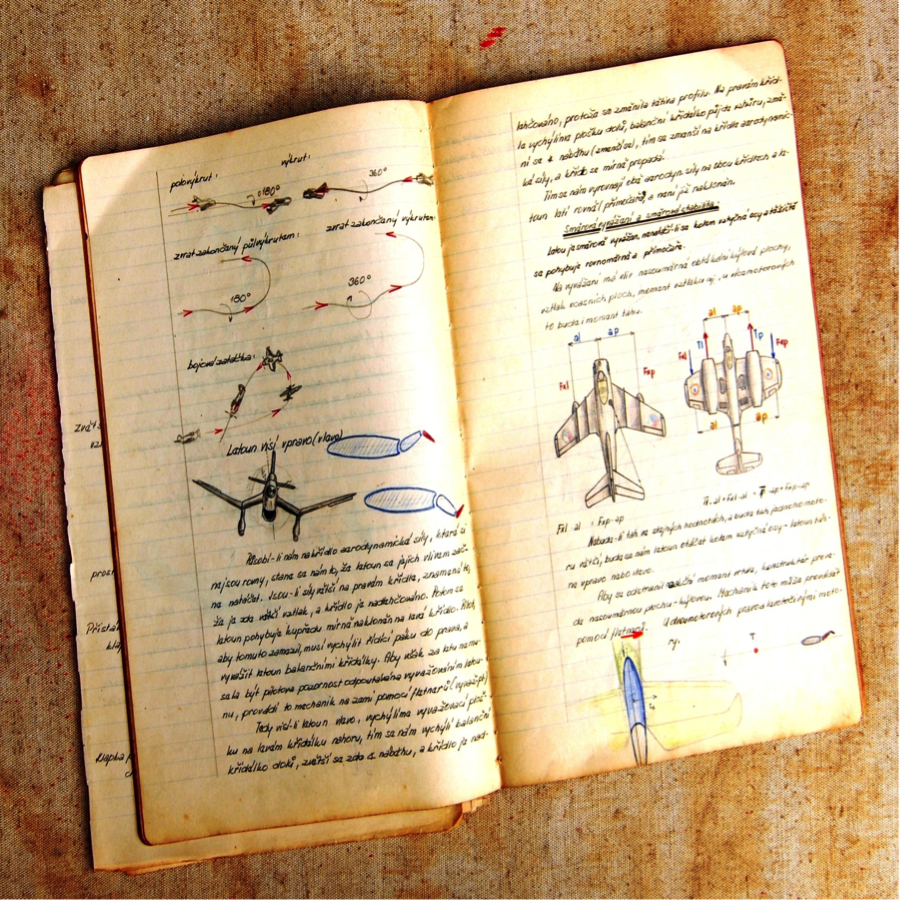 výkrut:
polovýkrut:
180°
360°
zvrat zakončaný půlvýkrutem:
zvrat zakončaný výkrutem:
180°
360°
bojová zatáčka:
Latoun visí vpravo (vlavo)
Působí-li nám na křídlo aerodynamická síly, která si
nejsou rovny, stane se nám to, že latoun se jejich vlivem zač-
na natáčet. Jsou-li síly větší na pravém křídle, znamená to,
že je zde větší vztlak, a křídlo je nadlehčováno. Potom se
latoun pohybuje kupředu mírně nakloněn na levé křídlo. Pilot,
aby tomuto zamezil, musí vychýlit řídící páku do prava, a
vyvážit latoun balančními křidélky. Aby však za letu ne-
sela být pilotova pozornost odpoutávána vyvažováním latou-
nu, provádí to mechanik na zemi pomocí fletnerů (vyvážení)
Tedy visí-li latoun vlavo, vychýlíme vyvažovací ploš-
ku na levém křidélku nahoru, tím se nám vychýlí balanční
křidélko dolů, zvětší se zde α náběhu, a křídlo je nad-
lehčováno, protože se změnila křivka profilu. Na pravém kříd-
le vychýlíme plošku dolů, balanční křidélko půjde vzhůru, změ-
ní se α náběhu (zmenší se), tím se zmenší na křídle aerodynamic-
ká síly, a křídlo se mírně propadá.
Tím se nám vyrovnají obě aerodyn. síly na obou křídlech a la-
toun letí rovně/přímočaře, a není již nakloněn.
Směrové vyvážení a směrová stabilita
se pohybuje rovnoměrně a přímočaře.
Na vyvážení má vliv nesouměrné obtékání kýlové plochy,
vztlak ocasních ploch, moment vztlaku aj., u vícemotorových
to bude i moment tahu.
al ap
Fel Fep
al ap
Fel Tl Tp Fep
al ap
Fel · al = Fep · ap
Tl · al + Fel · al = Tp · ap + Fep · ap
Nebude-li tah ve stejných hodnotách, a bude tah jednoho moto-
ru větší, bude se nám latoun otáčet kolem svislé osy - latoun táh-
ne vpravo nebo vlevo.
Aby se odstranil moment vrtule, konstruktér prove-
de nesouměrnou plochu-kýlovou. Mechanik toto může provádět
pomocí fletnerů. U dvoumotorových právě levotočivými moto-
ry.
T
Zvrát
prost
Přistá
klap
Klapka